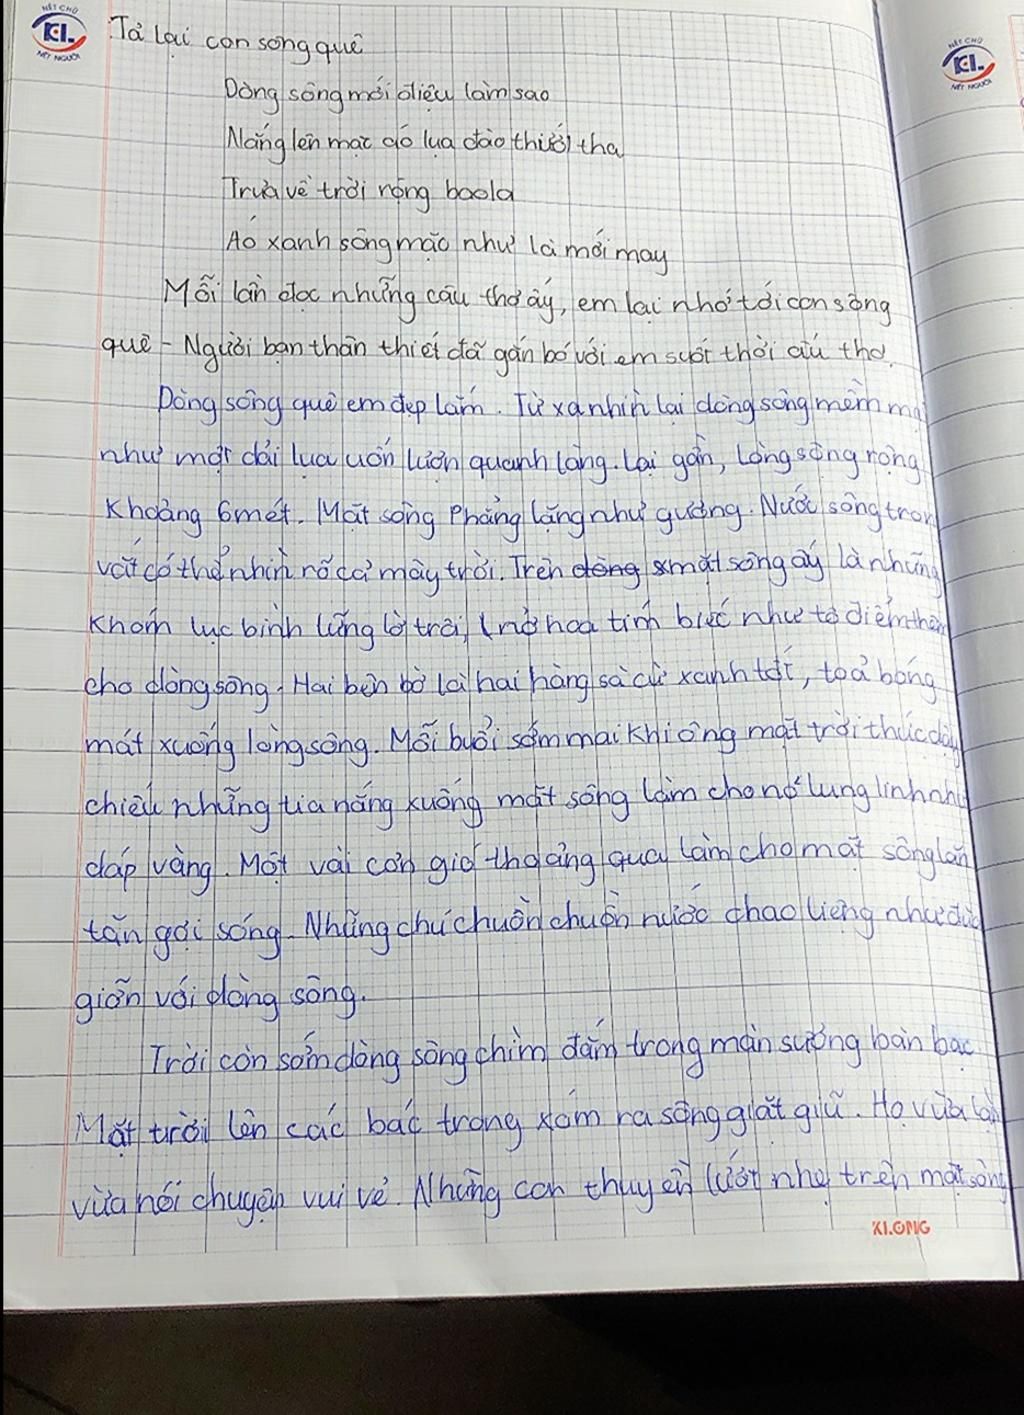 NÉT CHỮ
KL.
NẾT NGƯỜI
NÉT CHỮ
KL.
NẾT NGƯỜI
Tả lại con sông quê
Dòng sông mới điệu làm sao
Nắng lên mặc áo lụa đào thướt tha
Trưa về trời rộng bao la
Áo xanh sông mặc như là mới may
Mỗi lần đọc những câu thơ ấy, em lại nhớ tới con sông
quê - Người bạn thân thiết đã gắn bó với em suốt thời ấu thơ
Dòng sông quê em đẹp lắm. Từ xa nhìn lại dòng sông mềm mại
như một dải lụa uốn lượn quanh làng. Lại gần, lòng sông rộng
Khoảng 6 mét. Mặt sông Phẳng lặng như gương. Nước sông trong
vắt có thể nhìn rõ cả mây trời. Trên dòng mặt sông ấy là những
Khóm lục bình lững lờ trôi, nở hoa tím biếc như tô điểm thêm
cho dòng sông. Hai bên bờ là hai hàng sà cừ xanh tốt, toả bóng
mát xuống lòng sông. Mỗi buổi sớm mai khi ông mặt trời thức dậy
chiếu những tia nắng xuống mặt sông làm cho nó lung linh như
dáp vàng. Một vài cơn gió thoảng qua làm cho mặt sông lăn
tăn gợi sóng. Những chú chuồn chuồn nước chao liệng như đùa
giỡn với dòng sông.
Trời còn sớm dòng sông chìm đắm trong màn sương bàn bạc
Mặt trời lên các bác trong xóm ra sông giặt giũ. Họ vừa làm
vừa nói chuyện vui vẻ. Những con thuyền lướt nhẹ trên mặt sông
KLONG